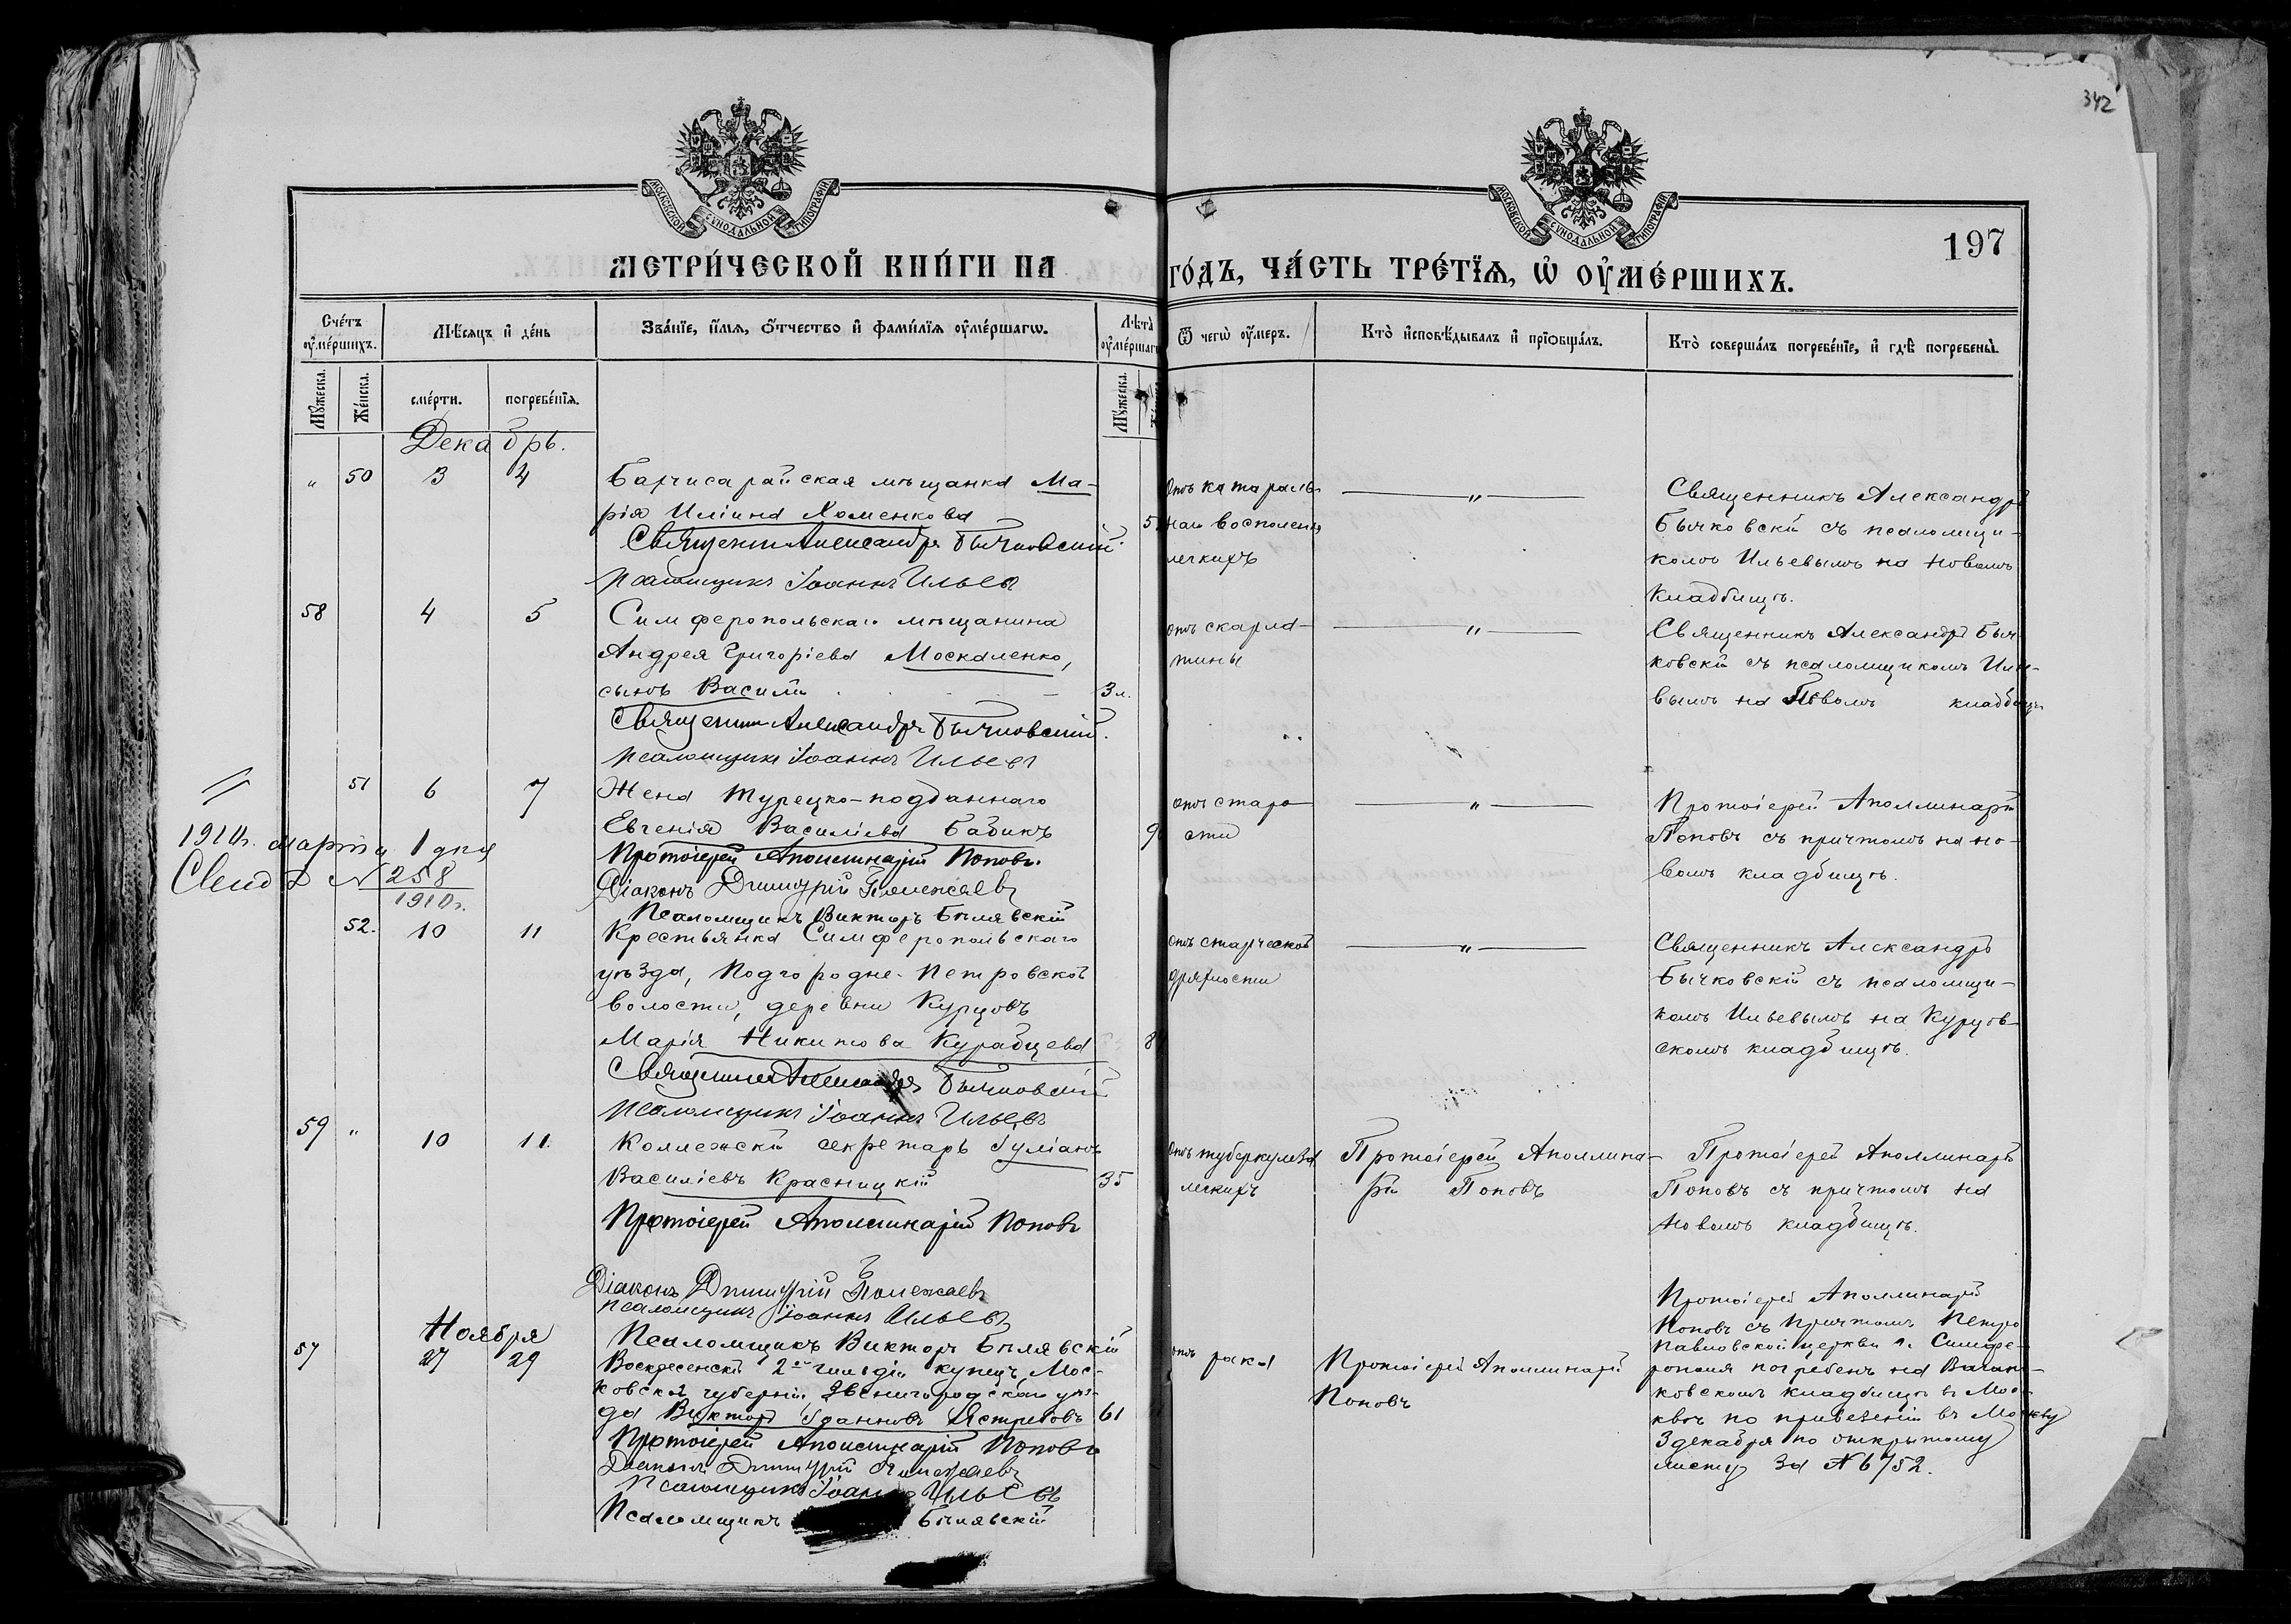 342
МОСКОВСКОЙ СѴНОДАЛЬНОЙ ТИПОГРАФІИ
МОСКОВСКОЙ СѴНОДАЛЬНОЙ ТИПОГРАФІИ
197
МЕТРИ́ЧЕСКОЙ КНИ́ГИ НА
ГО́ДЪ, ЧА́СТЬ ТРЕ́ТІѦ, Ѡ ОУМЕ́РШИХЪ.
Сче́тъ оумéршихъ.
Мѣ́сяцъ и де́нь
Зва́нїе, и́мя, о́тчество и фами́лїя оуме́ршагѡ.
Лѣта̀ оуме́ршагѡ
Ѿ чегѡ̀ оу́меръ.
Кто̀ исповѣ́дывалъ и прїобща́лъ.
Кто̀ соверша́лъ погребе́нїе, и гдѣ̀ погребены̀.
Му́жеска.
Же́нска.
сме́рти.
погребе́нїя.
Му́жеска.
Декабрь.
" 50 3 4
Бахчисарайская мѣщанка Ма-
рія Иліина Хоменкова 5
Священникъ Александръ Бычковскій
Псаломщикъ Іоаннъ Ильевъ
отъ катараль-
наго воспаленія
легкихъ
"
Священникъ Александръ
Бычковскій съ псаломщи-
комъ Ильевымъ на новомъ
кладбищѣ.
58 4 5
Симферопольскаго мѣщанина
Андрея Григоріева Москаленко,
сынъ Василій 3 л.
Священникъ Александръ Бычковскій.
Псаломщикъ Іоаннъ Ильевъ
отъ скарла-
тины
"
Священникъ Александръ Быч-
ковскій съ псаломщикомъ Илье-
вымъ на Новомъ кладбищѣ
51 6 7
Жена турецко-подданнаго
Евгенія Василіева Бабикъ 9
Протоіерей Аполлинарій Поповъ.
Діаконъ Димитрій Полежаевъ
Псаломщикъ Викторъ Бѣлявскій
1910г. марта 1 дня
№ 258
1910г.
отъ старо-
сти
"
Протоіерей Аполлинарій
Поповъ съ причтомъ на но-
вомъ кладбищѣ.
52. 10 11
Крестьянка Симферопольскаго
уѣзда, Подгородне-Петровской
волости, деревни Курцовъ
Марія Никитова Курабцева 8
Священникъ Александръ Бычковскій
Псаломщикъ Іоаннъ Ильевъ
отъ старческой
дряхлости
"
Священникъ Александръ
Бычковскій съ псаломщи-
комъ Ильевымъ на Курцов-
скомъ кладбищѣ.
59 " 10 11.
Коллежскій секретарь Іуліанъ
Василіевъ Красницкій 35
Протоіерей Аполлинарій Поповъ
Діаконъ Димитрій Полежаевъ
Псаломщикъ Іоаннъ Ильевъ
Псаломщикъ Викторъ Бѣлявскій
отъ туберкулеза
легкихъ
Протоіерей Аполлина-
рій Поповъ
Протоіерей Аполлинарій
Поповъ съ причтомъ на
новомъ кладбищѣ.
Ноября
57 27 29
Воскресенскій 2й гильдіи купецъ, Мос-
ковской губерніи, Звенигородскаго уѣз-
да Викторъ Іоанновъ Ястребовъ 61
Протоіерей Аполлинарій Поповъ
Діаконъ Димитрій Полежаевъ
Псаломщикъ Іоаннъ Ильевъ
Псаломщикъ Бѣлявскій
отъ рака
Протоіерей Аполлинарій
Поповъ
Протоіерей Аполлинарій
Поповъ съ причтомъ Петро
Павловской церкви г. Симфе-
рополя погребенъ на Вагань-
ковскомъ кладбищѣ въ Мос-
квѣ по привезеніи въ Москву
3 декабря по открытому
листу за № 6752.